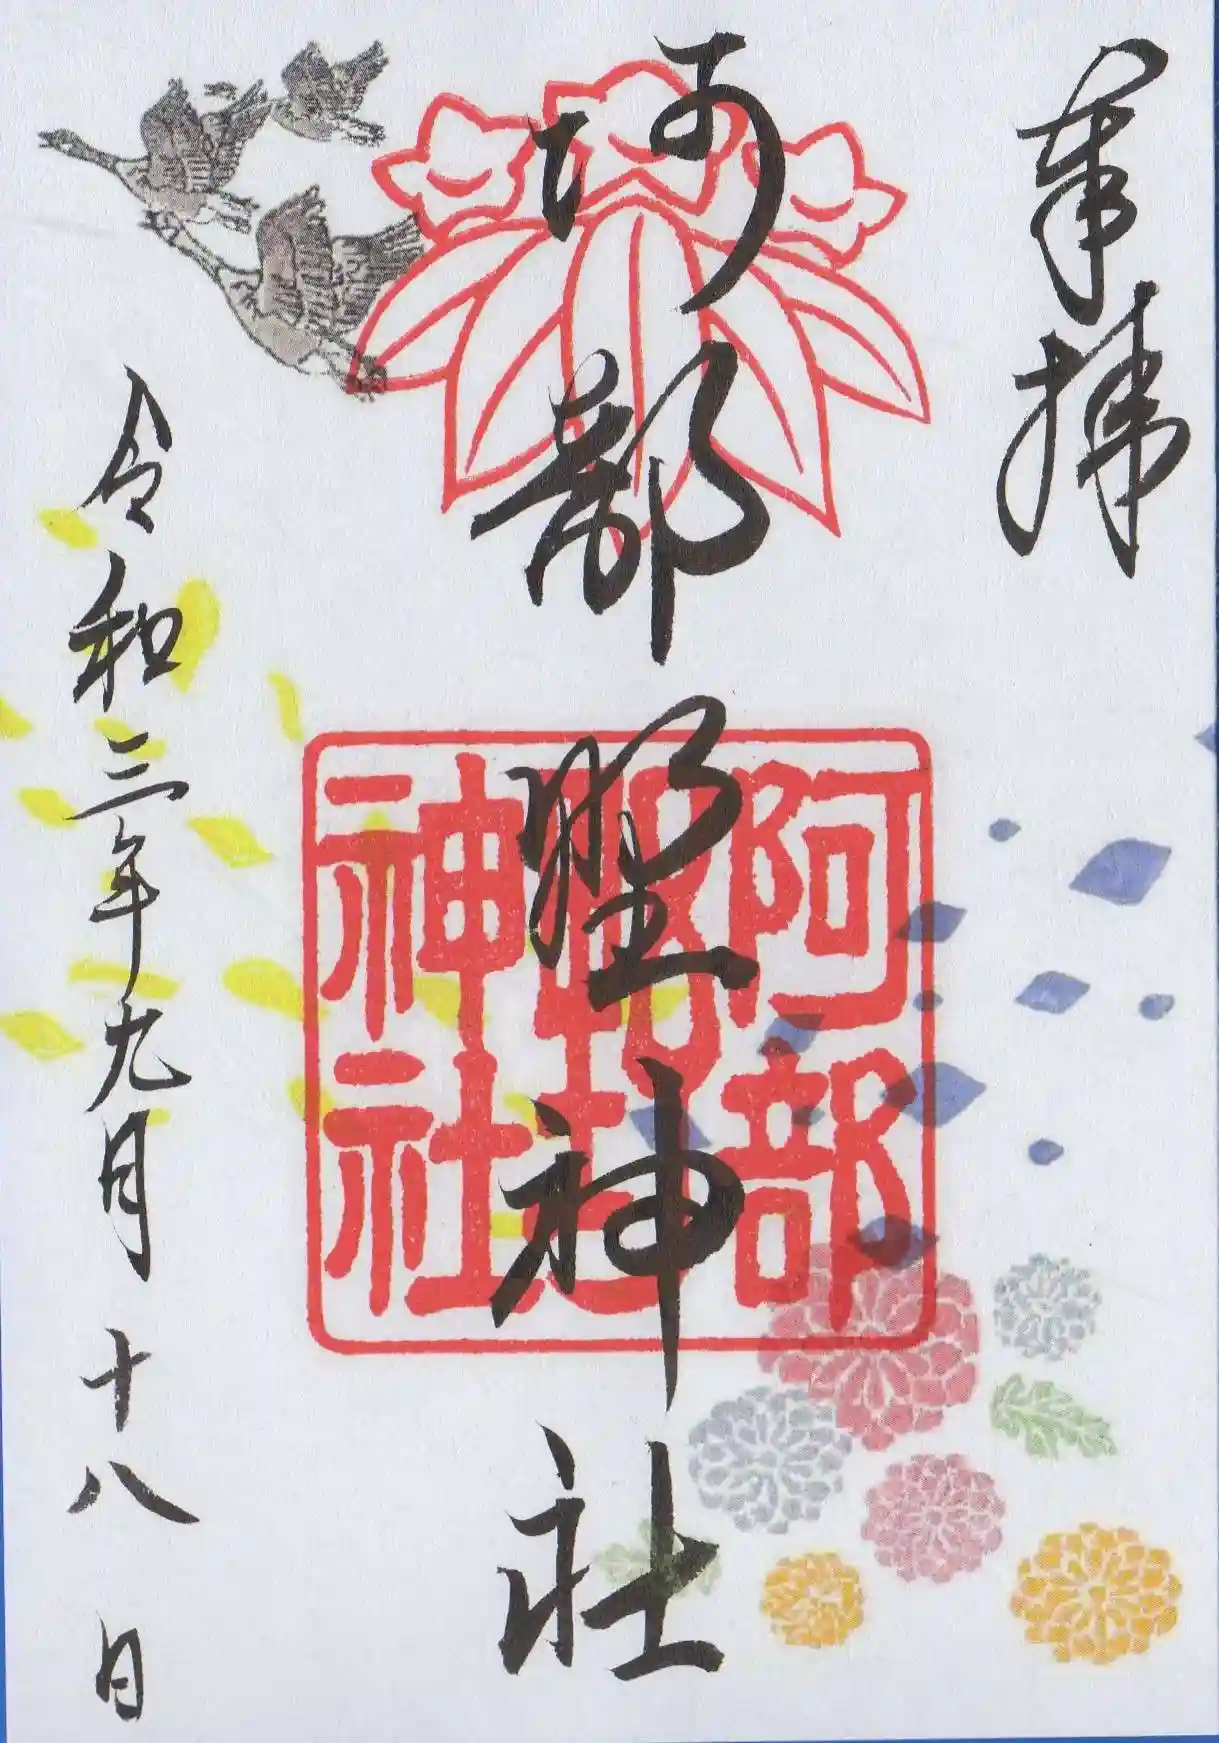 奉拝
阿部野神社
阿部
野神社
令和三年九月十八日